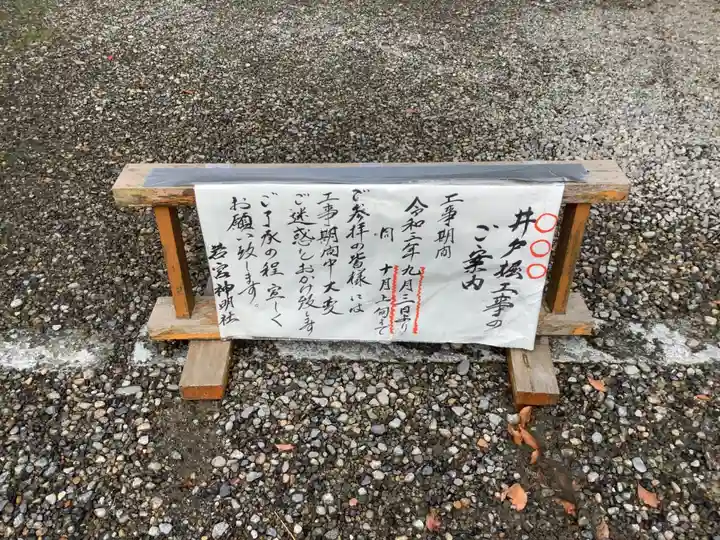 井戸掘工事の
ご案内
工事期間
令和三年九月三日より
同 十月上旬まで
ご参拝の皆様には
工事期間中大変
ご迷惑をおかけ致します
ご了承の程宜しく
お願い致します。
若宮神明社